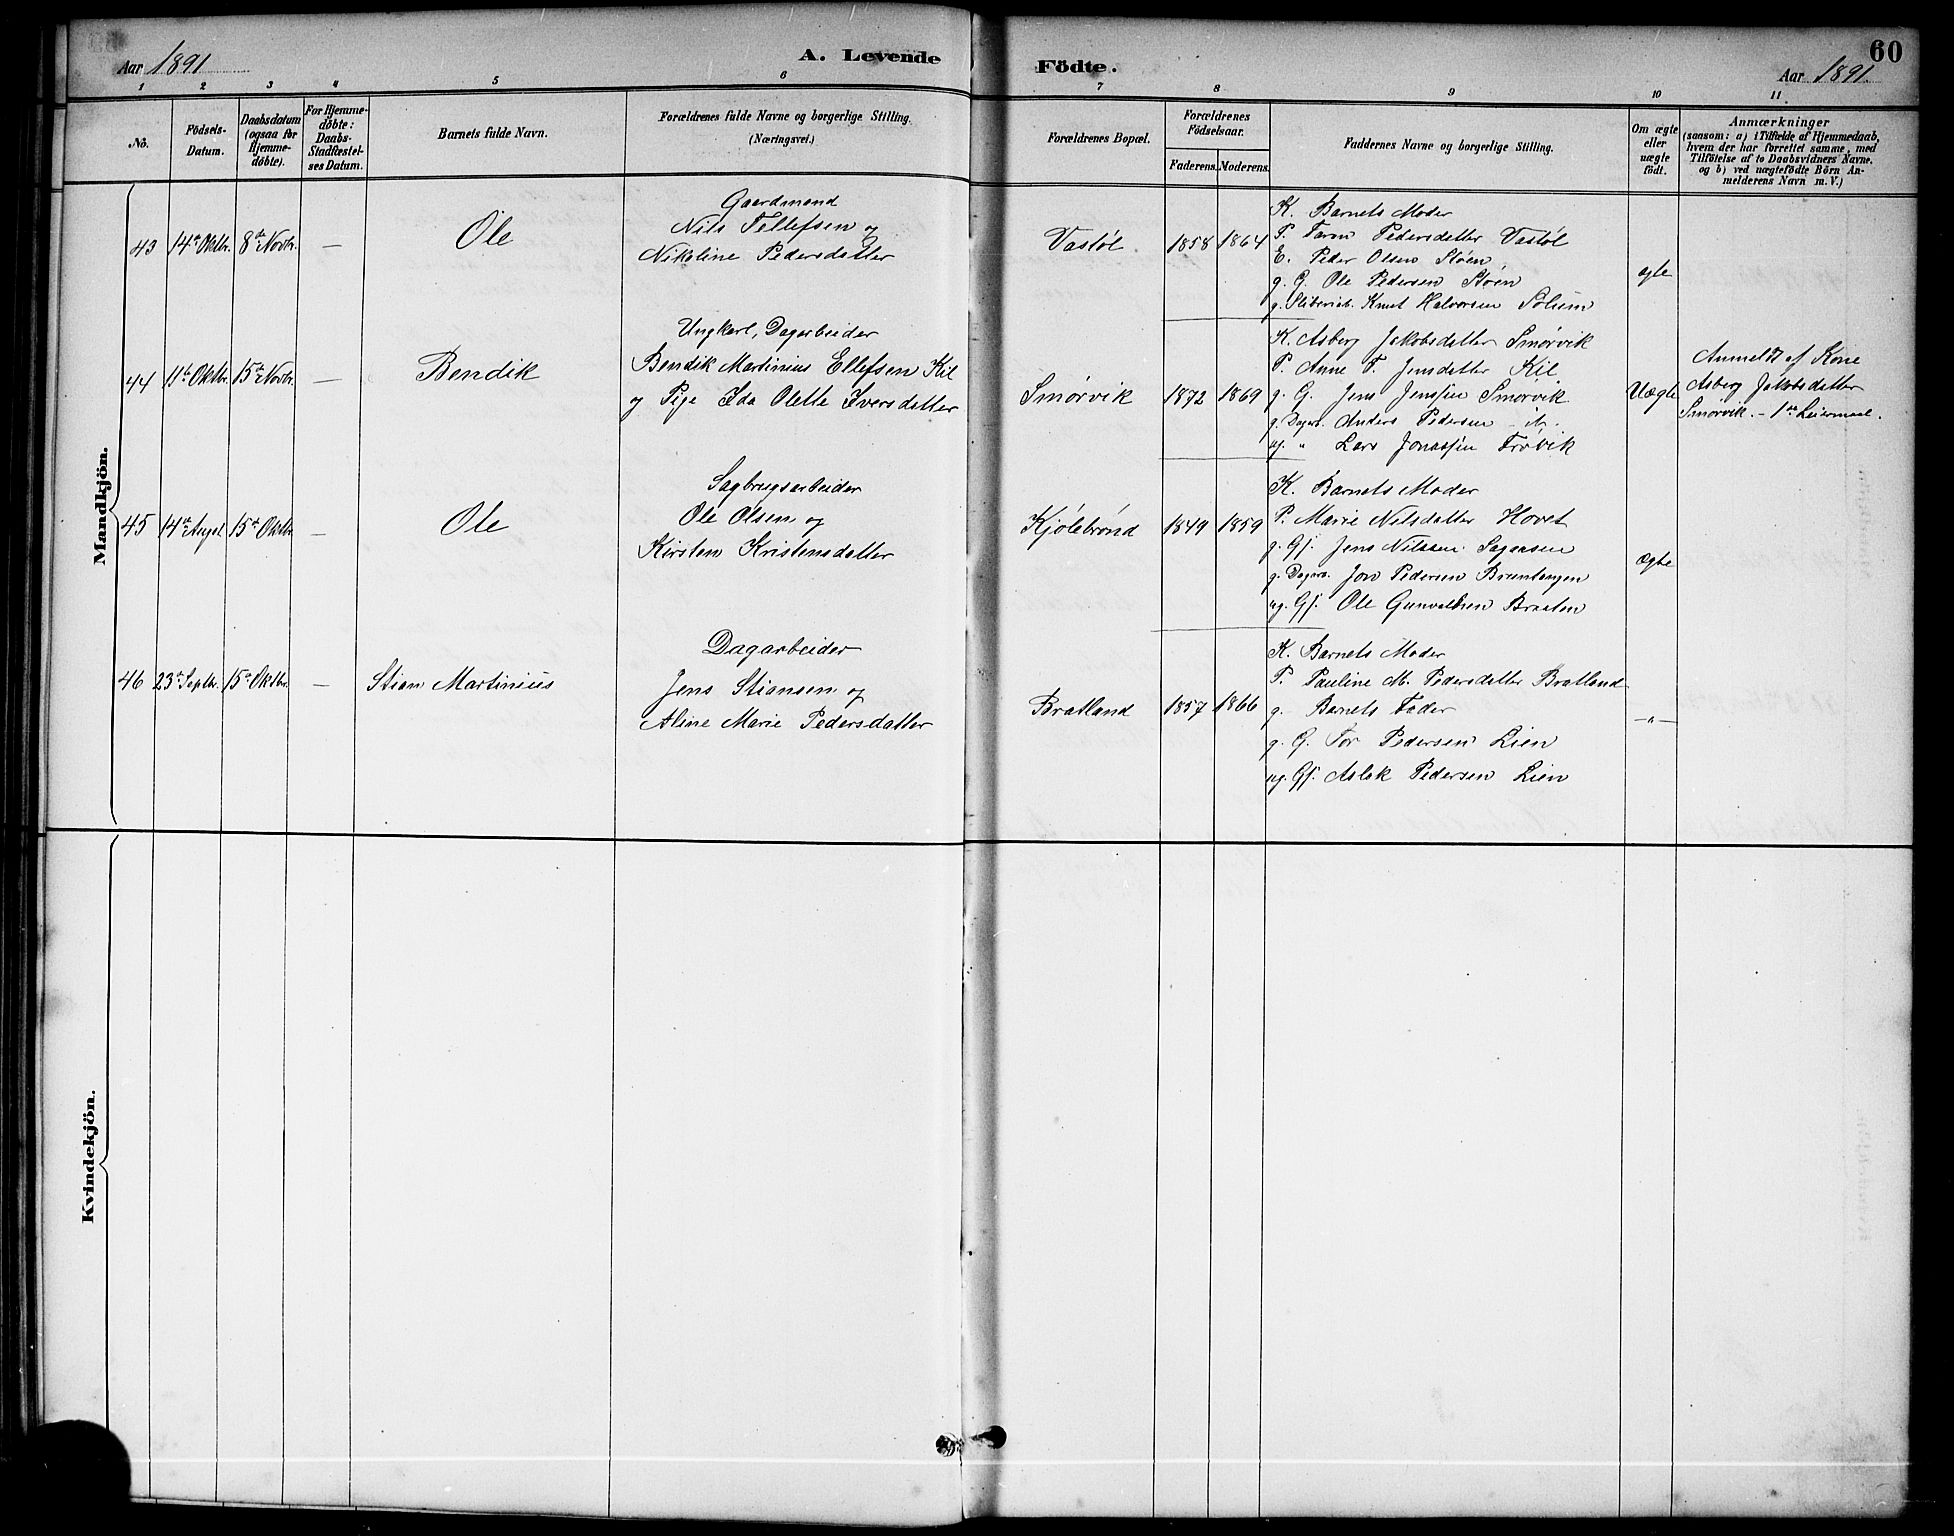 Aar 1891
A. Levende
Födte.
60
Aar 1891
1 2 3 4 5 6 7 8 9 10 11.
No.
Födsels-
Datum.
Daabsdatum
(ogsaa for
Hjemme-
döbte).
For Hjemme-
döbte:
Daabs-
Stadfæstel-
ses Datum.
Barnets fulde Navn.
Forældrenes fulde Navne og borgerlige Stilling.
(Næringsvei.)
Forældrenes Bopæl.
Forældrenes
Födselsaar.
Faderens. Moderens.
Faddernes Navne og borgerlige Stilling.
Om ægte
eller
uægte
födt.
Anmærkninger
(saasom: a) i Tilfælde af Hjemmedaab,
hvem der har forrettet samme, med
Tilföielse af to Daabsvidners Navne.
og b) ved uægtefödte Börn An-
melderens Navn m. V.)
Mandkjön.
43 14de Oktbr. 8de Novbr. — Ole
Gaardmand
Nils Tellefsen og
Nikoline Pedersdatter
Vastøl 1858 1864
K. Barnets Moder
P. Taran Pedersdatter Vastøl
E. Peder Olsen Støen
g. G. Ole Pedersen Støen
g. Sliberiarb. Knut Halvorsen Solum
ægte
44 11te Oktbr. 15de Novbr. — Bendik
Ungkarl, Dagarbeider
Bendik Martinius Ellefsen Kil
og Pige Ida Olette Iversdatter
Smørvik 1872 1869
K. Asberg Jakobsdatter Smørvik
P. Anne T. Jensdatter Kil
g. G. Jens Jenssen Smørvik
g. Dagarb. Anders Pedersen - ib.
ug. " Lars Jonassen Trøvik
Uægte
Anmeldt af Kone
Asberg Jakobsdatter
Smørvik. - 1ste Leiermaal.
45 14de Augst 15de Oktbr. — Ole
Sagbrugsarbeider
Ole Olsen og
Kirsten Kristensdatter
Kjølebrønd 1849 1859
K. Barnets Moder
P. Marie Nilsdatter Hovet
g. Gf. Jens Nilssen Sagaasen
g. Dagarb. Jon Pedersen Bruntangen
ug. Gf. Ole Gunvaldsen Braaten
Ægte
46 23de Septbr. 15de Oktbr. — Stian Martinius
Dagarbeider
Jens Stiansen og
Aline Marie Pedersdatter
Bratland 1857 1866
K. Barnets Moder
P. Pauline M. Pedersdatter Bratland
g. Barnets Fader
g. G. Tor Pedersen Lien
ug. Gf. Aslak Pedersen Lien
—"—
Kvindekjön.